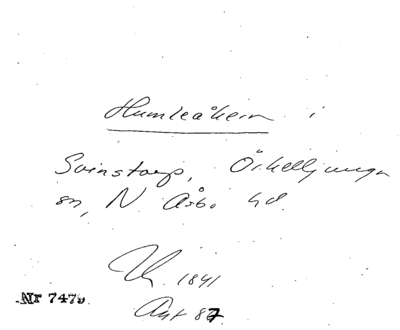 Humleåkern i
Svinstorp, Örkelljunga
sn, N. Åsbo hd
Lh. 1841
Akt 87
Nr 7479